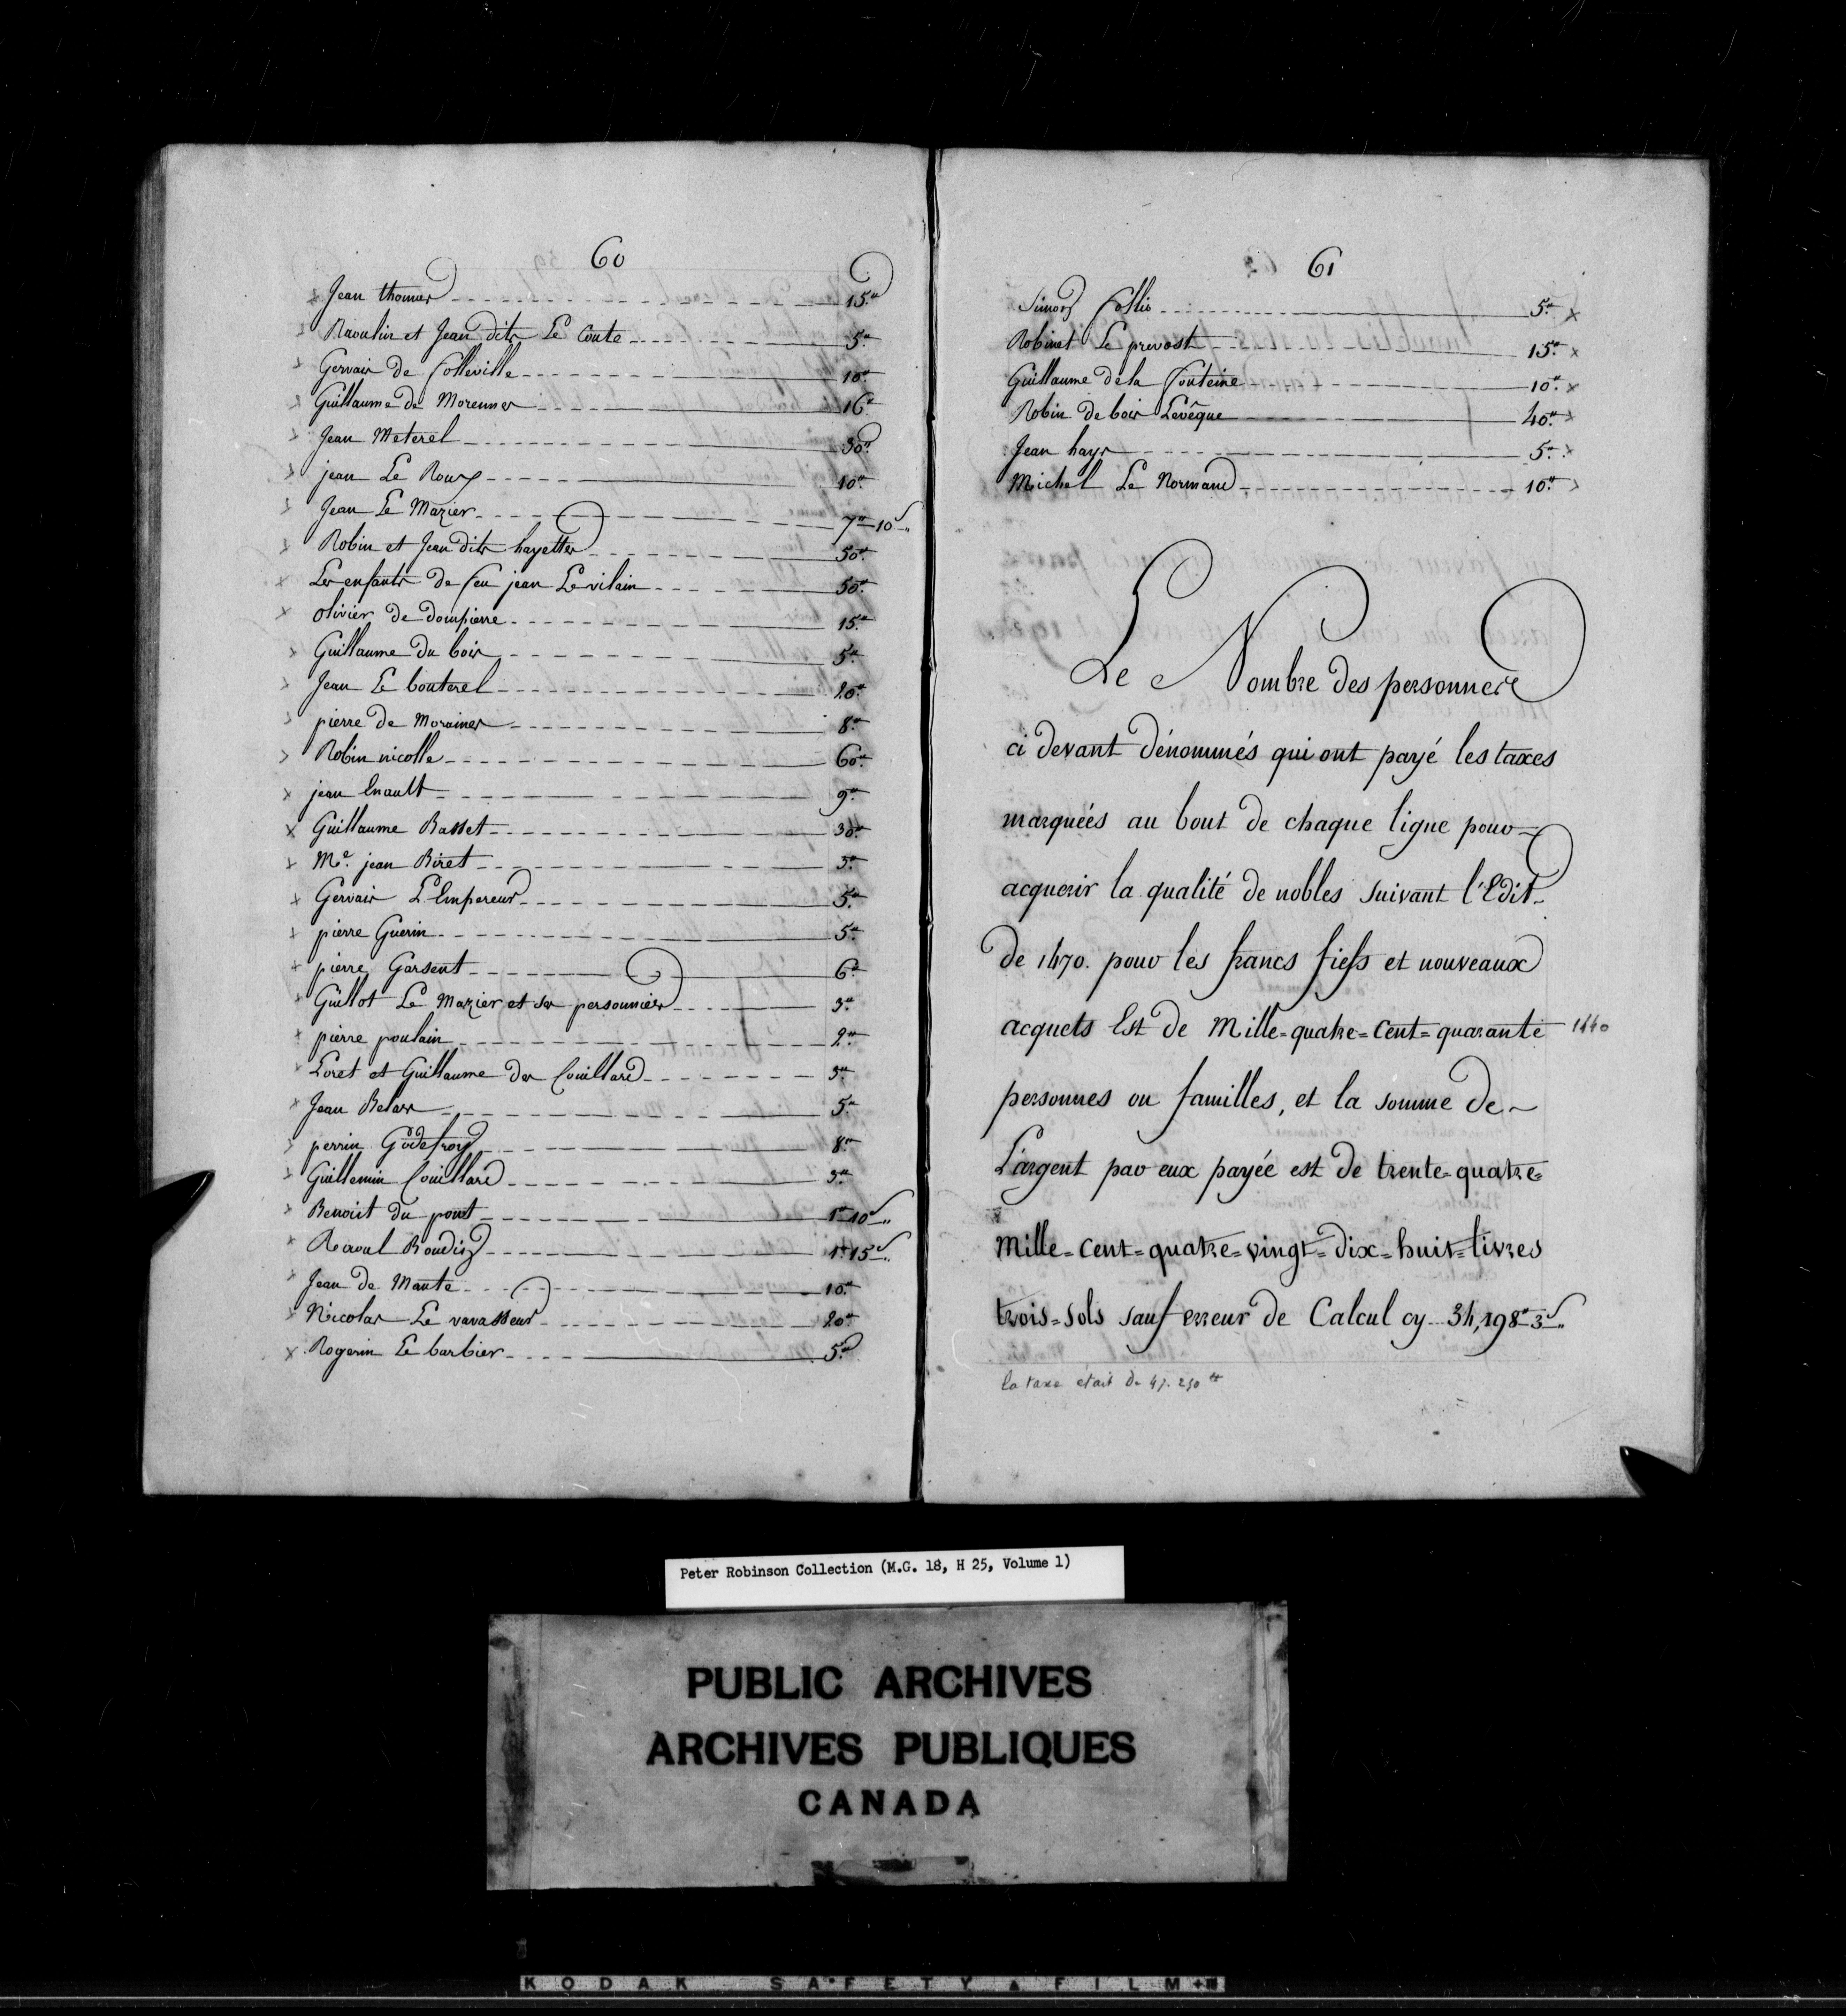 60
Jean thomas 15.tt
Raoulin et Jean dits Le Conte 5.tt
Gervais de Colleville 10.tt
Guillaume de Morennes 16.tt
Jean Meterel 30.tt
jean Le Roux 10.tt
Jean Le Mazier 7tt 10s.
Robin et Jean dits hayettes 50.tt
Les enfants de feu jean Le vilain 50.tt
Olivier de dompierre 15.tt
Guillaume du bois 5.tt
Jean Le bouterel 20.tt
pierre de Moraines 8.tt
Robin nicolle 60.tt
jean Enault 9.tt
Guillaume Basset 30.tt
Me. jean Biret 5.tt
Gervais L'Empereur 5.tt
pierre Guerin 5.tt
pierre Garsent 6.tt
Guillot Le Mazier et ses personniers 3.tt
pierre poulain 2.tt
Loret et Guillaume des Couillard 3.tt
Jean Belars 5.tt
perrin Godefroy 8.tt
Guillemin Couillard 3.tt
Benoist du pont 1tt 10s.
Raoul Boudin 1tt 15s.
Jean de Mante 10.tt
Nicolas Le vavasseur 20.tt
Rogerin Le barbier 5.tt
61
Simon Collis 5.tt
Robinet Le prevost 15.tt
Guillaume de la fonteine 10.tt
Robin de bois Levêque 40.tt
Jean hays 5.tt
Michel Le Normand 10.tt
Le Nombre des personnes
ci devant dénommés qui ont payé les taxes
marquées au bout de chaque ligne pour
acquerir la qualité de nobles suivant l'Edit
de 1470. pour les francs fiefs et nouveaux
acquets Est de Mille=quatre=Cent=quarante 1440
personnes ou familles, et la somme de
L'argent par eux payée est de trente=quatre
Mille=Cent=quatre=vingt=dix=huit=livres
trois=sols sauf erreur de Calcul cy 34,198tt 3s.
la taxe était de 47.250tt
Peter Robinson Collection (M.G. 18, H 25, Volume 1)
PUBLIC ARCHIVES
ARCHIVES PUBLIQUES
CANADA
KODAK SAFETY FILM